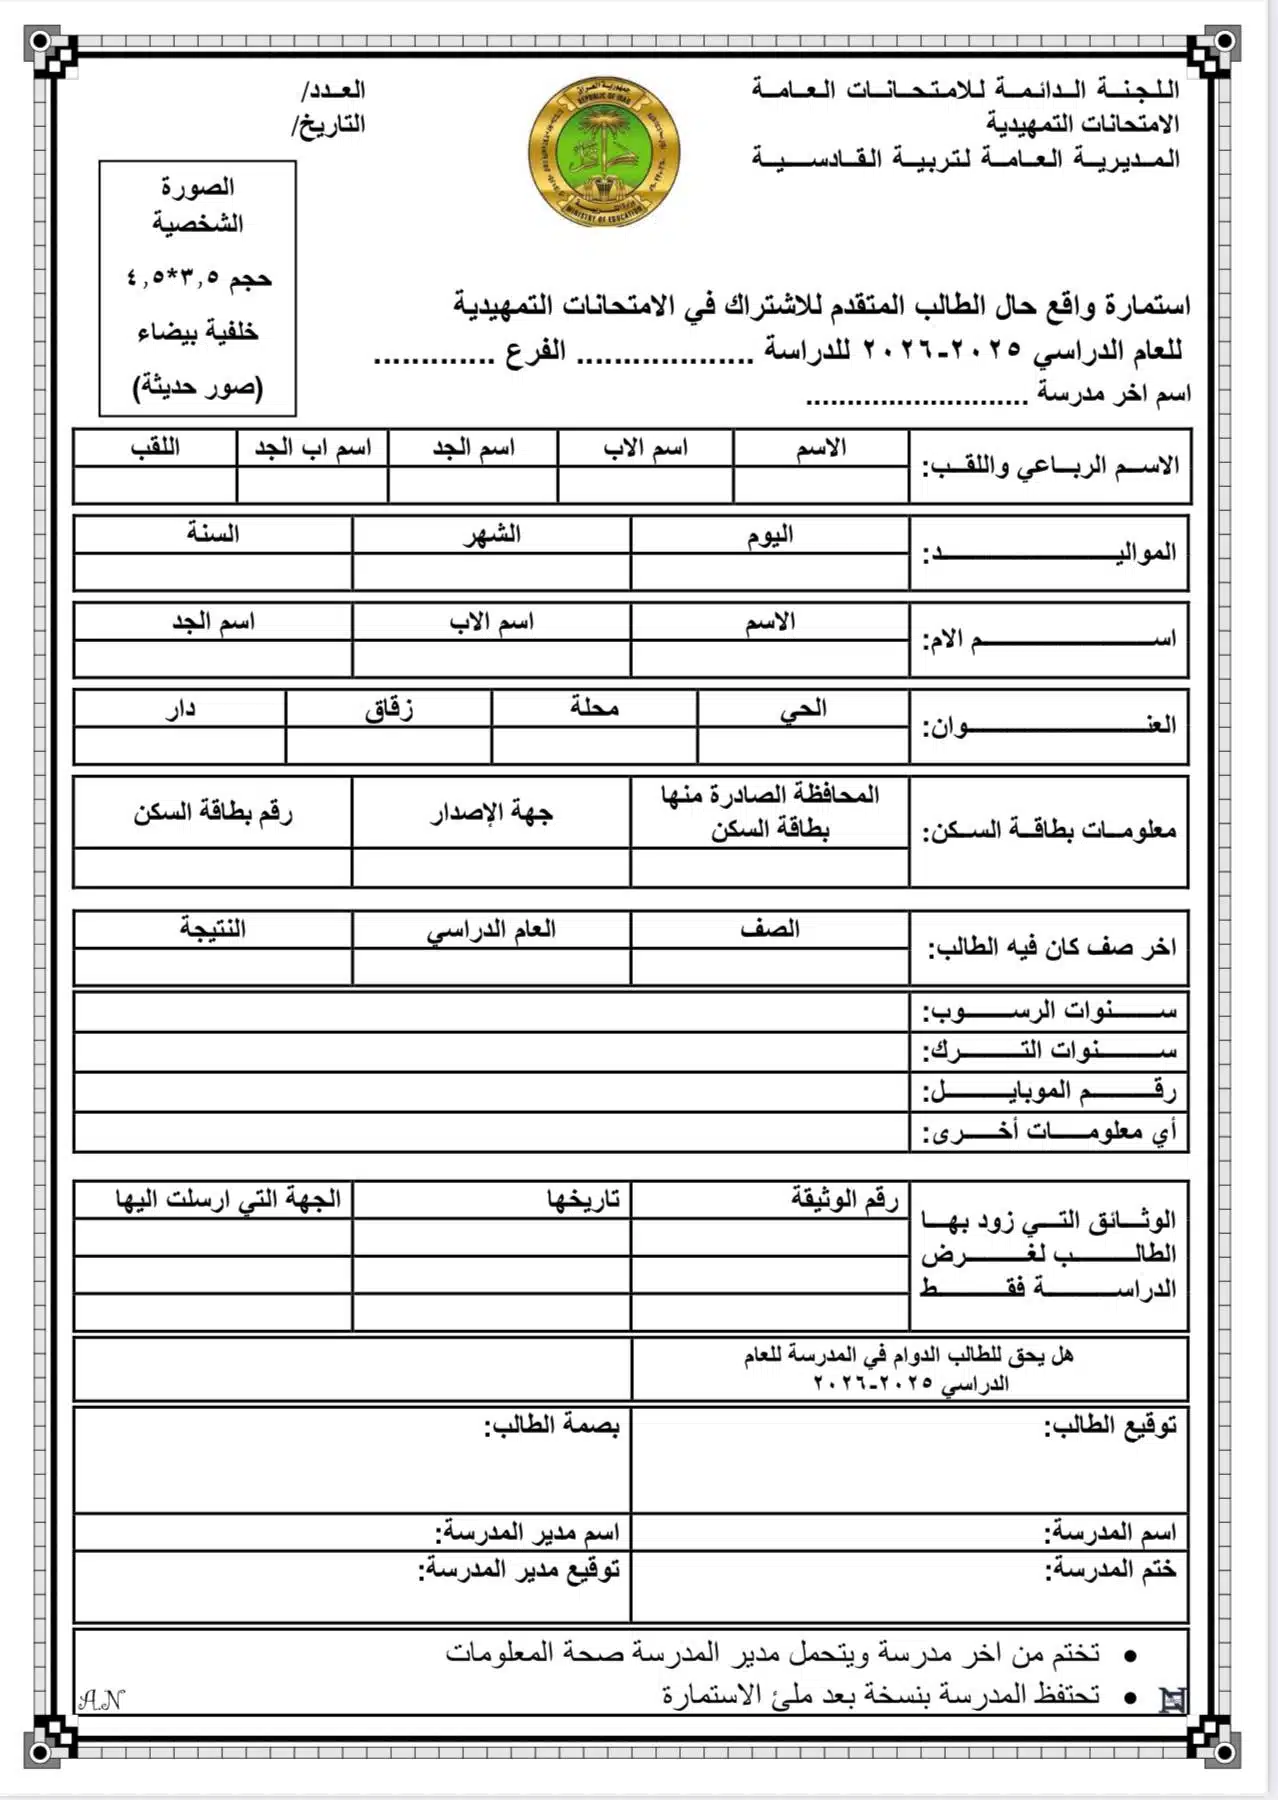 اللجنة الدائمة للامتحانات العامة
الامتحانات التمهيدية
المديرية العامة لتربية القادسية
العدد/
التاريخ/
REPUBLIC OF IRAQ
MINISTRY OF EDUCATION
الصورة
الشخصية
حجم ٣,٥*٤,٥
خلفية بيضاء
(صور حديثة)
استمارة واقع حال الطالب المتقدم للاشتراك في الامتحانات التمهيدية
للعام الدراسي ٢٠٢٥-٢٠٢٦ للدراسة ................... الفرع .............
اسم اخر مدرسة ...........................
الاسم الرباعي واللقب: الاسم اسم الاب اسم الجد اسم اب الجد اللقب
المواليد: اليوم الشهر السنة
اسم الام: الاسم اسم الاب اسم الجد
العنوان: الحي محلة زقاق دار
معلومات بطاقة السكن: المحافظة الصادرة منها جهة الإصدار رقم بطاقة السكن
بطاقة السكن
اخر صف كان فيه الطالب: الصف العام الدراسي النتيجة
سنوات الرسوب:
سنوات الترك:
رقم الموبايل:
أي معلومات أخرى:
الوثائق التي زود بها
الطالب لغرض
الدراسة فقط
رقم الوثيقة تاريخها الجهة التي ارسلت اليها
هل يحق للطالب الدوام في المدرسة للعام
الدراسي ٢٠٢٥-٢٠٢٦
توقيع الطالب: بصمة الطالب:
اسم المدرسة: اسم مدير المدرسة:
ختم المدرسة: توقيع مدير المدرسة:
• تختم من اخر مدرسة ويتحمل مدير المدرسة صحة المعلومات
• تحتفظ المدرسة بنسخة بعد ملئ الاستمارة
AN